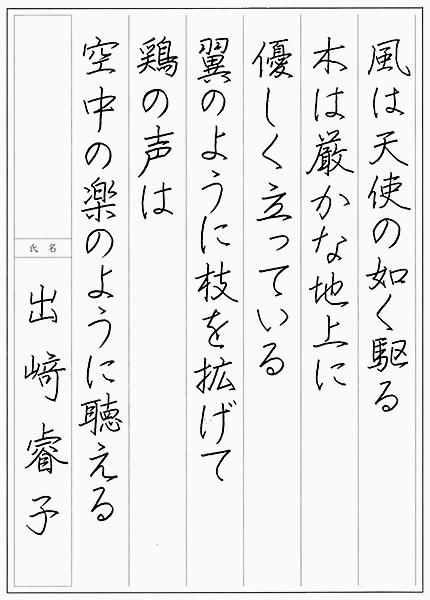 風は天使の如く駆る
木は厳かな地上に
優しく立っている
翼のように枝を拡げて
鶏の声は
空中の楽のように聴える
氏名
出﨑睿子